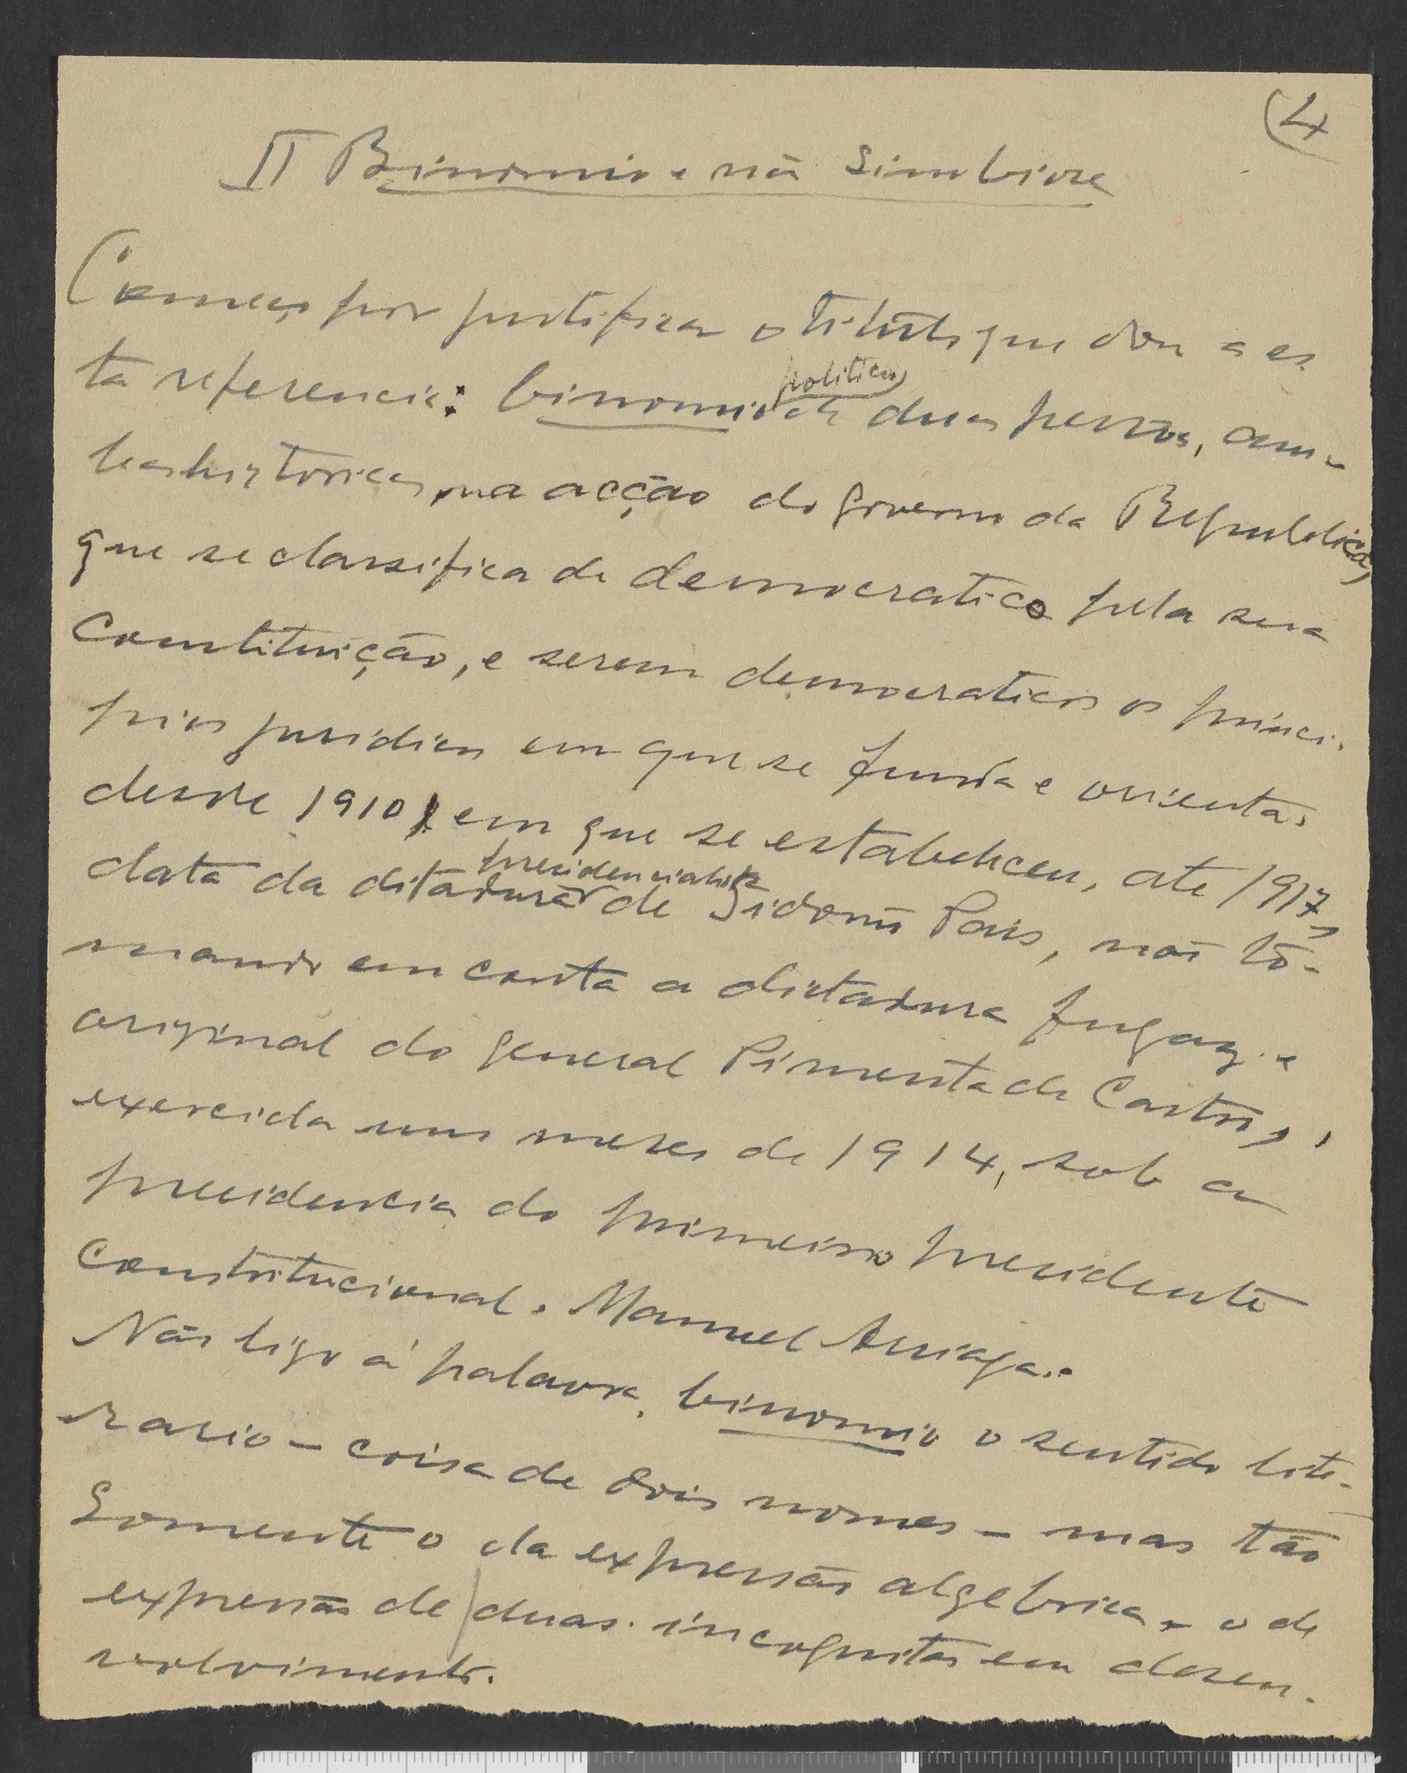 (4
II Binomio e não Simbiose
Começo por justificar o titulo que dou a es-
ta referencia: binomio politico de duas pessoas, am-
bas historicas, na acção do governo da Republica,
que se classifica de democratico pela sua
Constituição, e serem democraticos os princi-
pios juridicos em que se funda e orienta,
desde 1910, em que se estabeleceu, ate 1917,
data da ditadura presidencialista de Sidonio Pais, não to-
mando em conta a dictadura fugaz e
original do general Pimenta de Castro,
exercida uns meses de 1914, sob a
presidencia do primeiro presidente
Constitucional. Manuel Arriaga.
Não ligo á palavra binomio o sentido lite-
rario - coisa de dois nomes - mas tão
Somente o da expressão algebrica, o de
expressão de duas incognitas em desen-
volvimento.